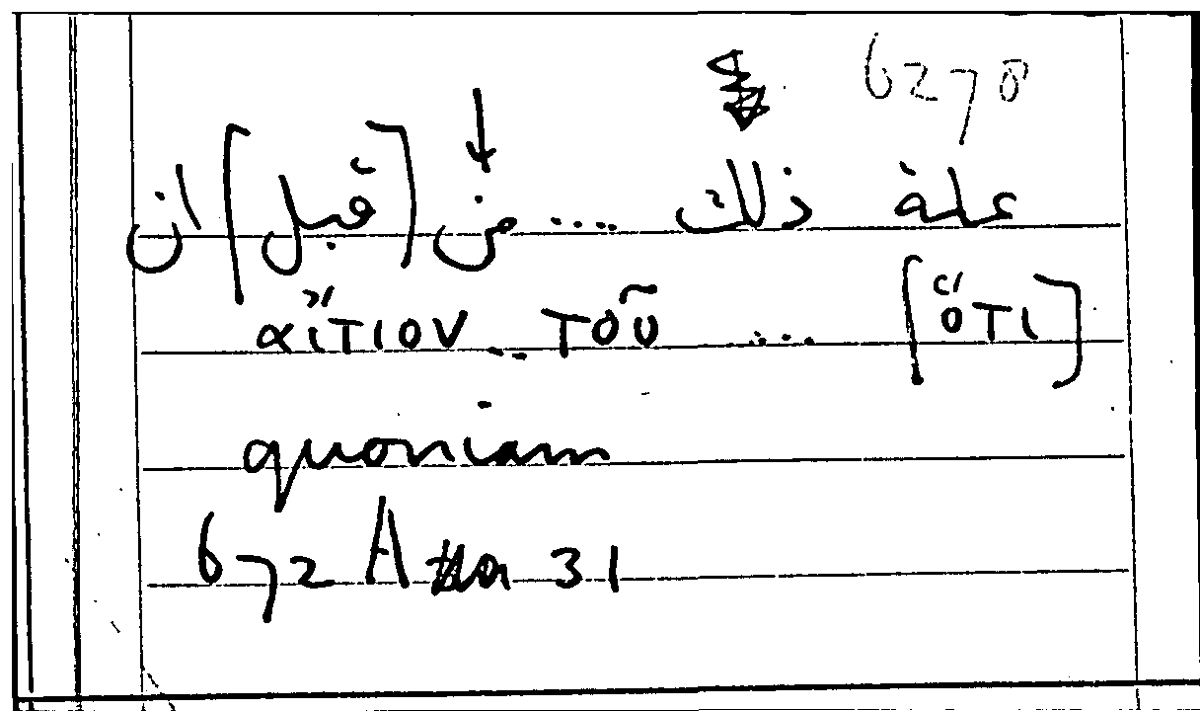 6270
علة ذلك .... من [قبل] ان
αἴτιον .. τοῦ .... [ὅτι]
quoniam
672 A 31